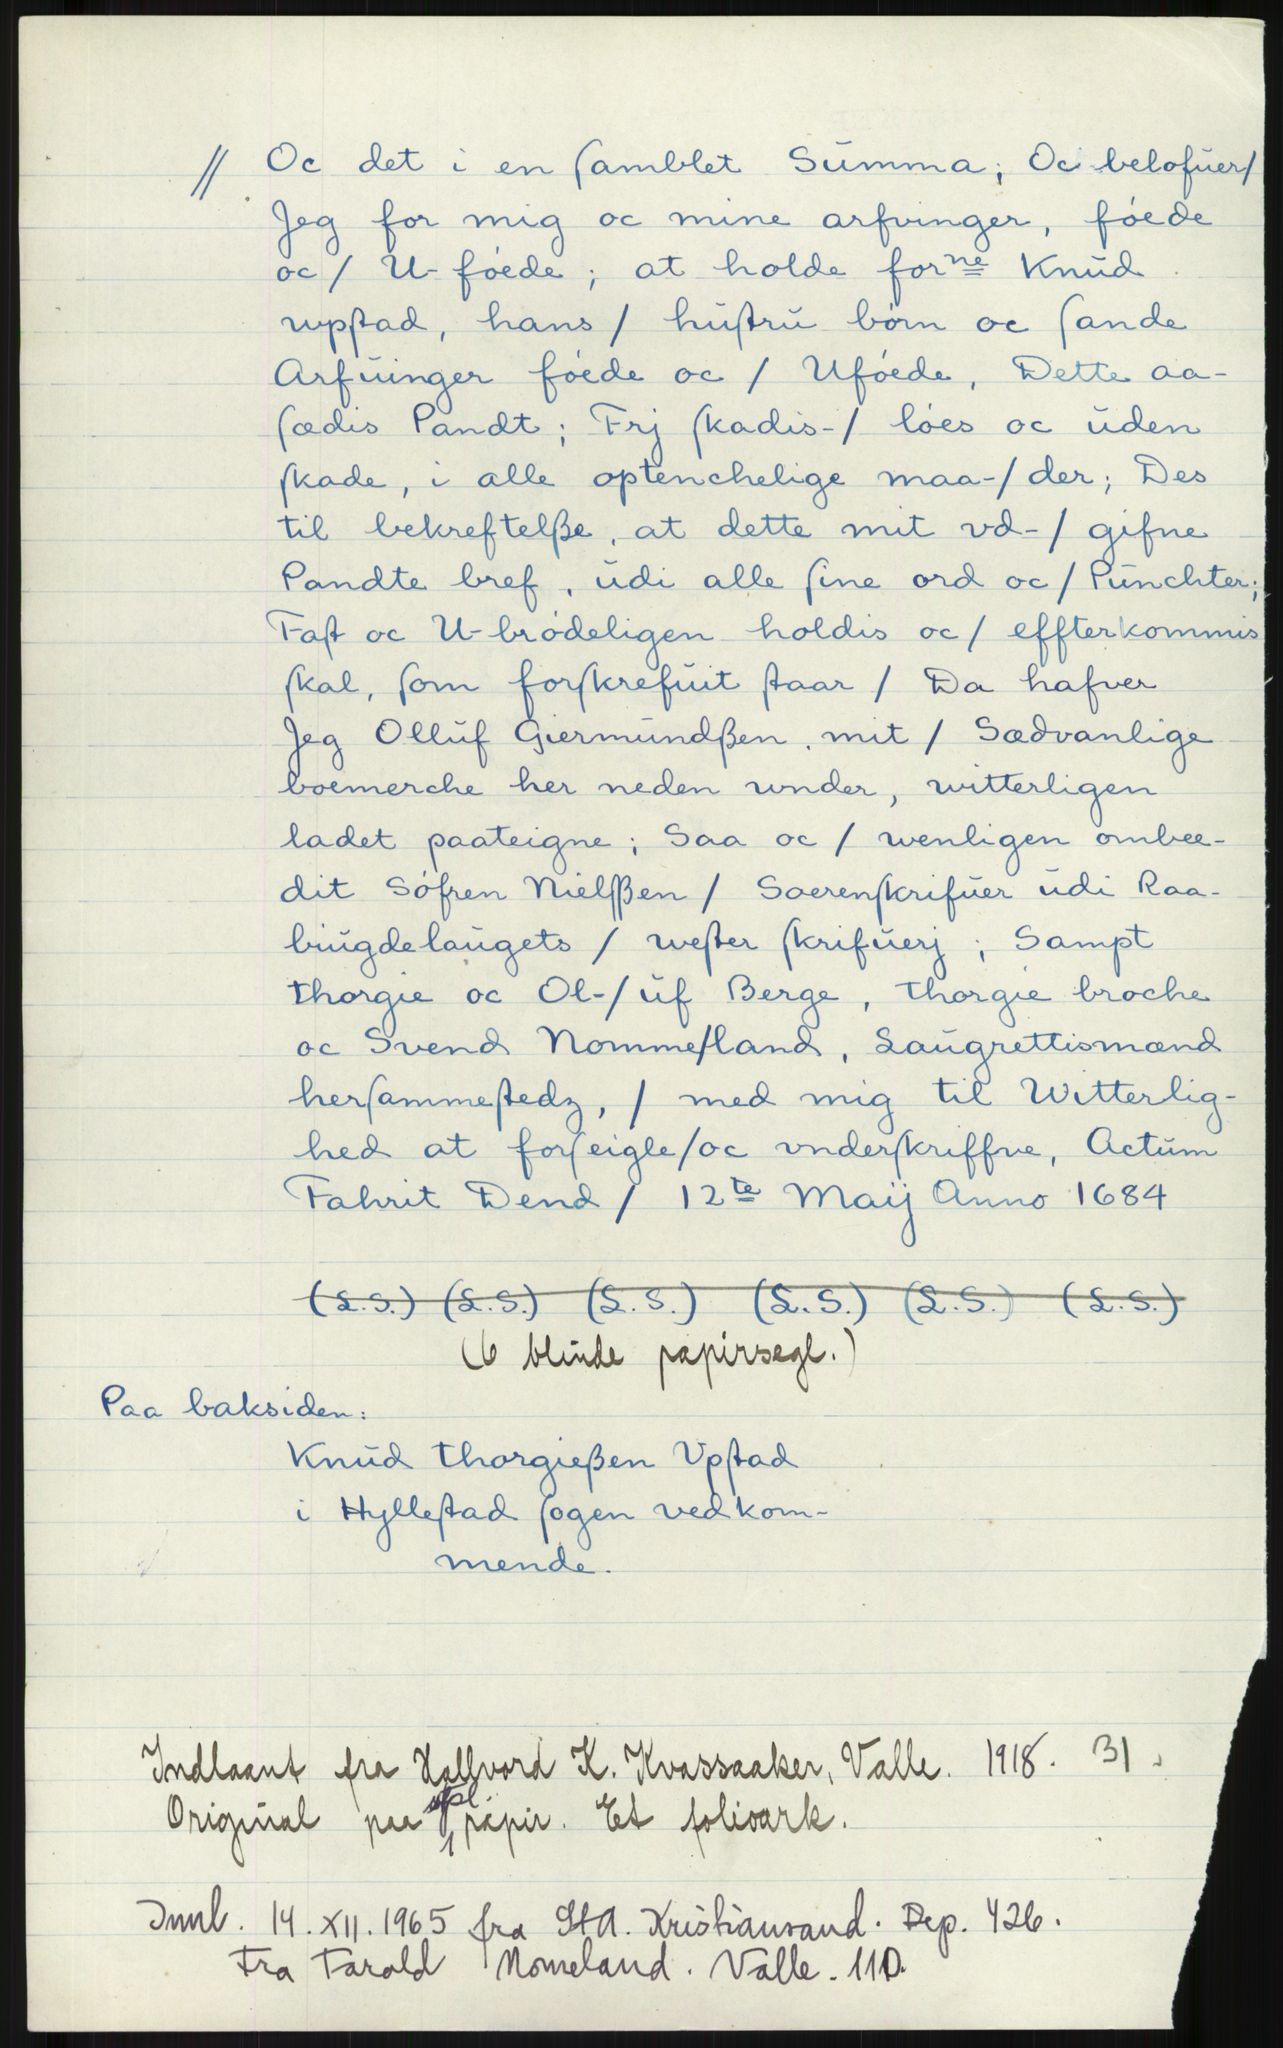 // Oc det i en ſamblet Summa; Oc belofuer/
Jeg for mig oc mine arfvinger, fóede
oc/ U-fóede; at holde forne Knud
wpſtad, hans / huſtru bórn oc ſande
Arfuinger fóede oc / Ufóede, Dette aa-
ſædis Pandt; Frj ſkadis-/ lóes oc uden
ſkade, i alle optenchelige maa-/ der; Des
til bekreftelße, at dette mit vd-/ gifne
Pandte bref, udi alle ſine ord oc/ Punchter;
Faſt oc U-bródeligen holdis oc/ effterkommis
ſkal, ſom forſkrefuit ſtaar / Da hafver
Jeg Olluf Giermundßen, mit / Sædvanlige
boemerche her neden wnder, witterligen
ladet paateigne; Saa oc / wenligen ombee-
dit Sófren Nielſßen / Soerenſkrifuer udi Raa-
biugdelaugets / weſter ſkrifuerj; Sampt
thorgie oc Ol-/ uf Berge, thorgie broche
oc Svend Nommeſland, Laugrettismænd
herſammeſtedz, / med mig til Witterlig-
hed at forſeigle/oc vnderſkriffve, Actum
Fahrit Dend / 12te Maij Anno 1684
(L.S.) (L.S.) (L.S.) (L.S.) (L.S.) (L.S.)
(6 blinde papirsegl.)
Paa baksiden:
Knud thorgießen Vpſtad
i Hylleſtad ſogen vedkom-
mende.
Indlaant fra Hallvord K. Kvassaaker, Valle. 1918. 31.
Original paa papir. Et folioark.
Innl. 14.XII.1965 fra StA. Kristiansand. Dep. 426.
Fra Tarald Nomeland. Valle. 110.